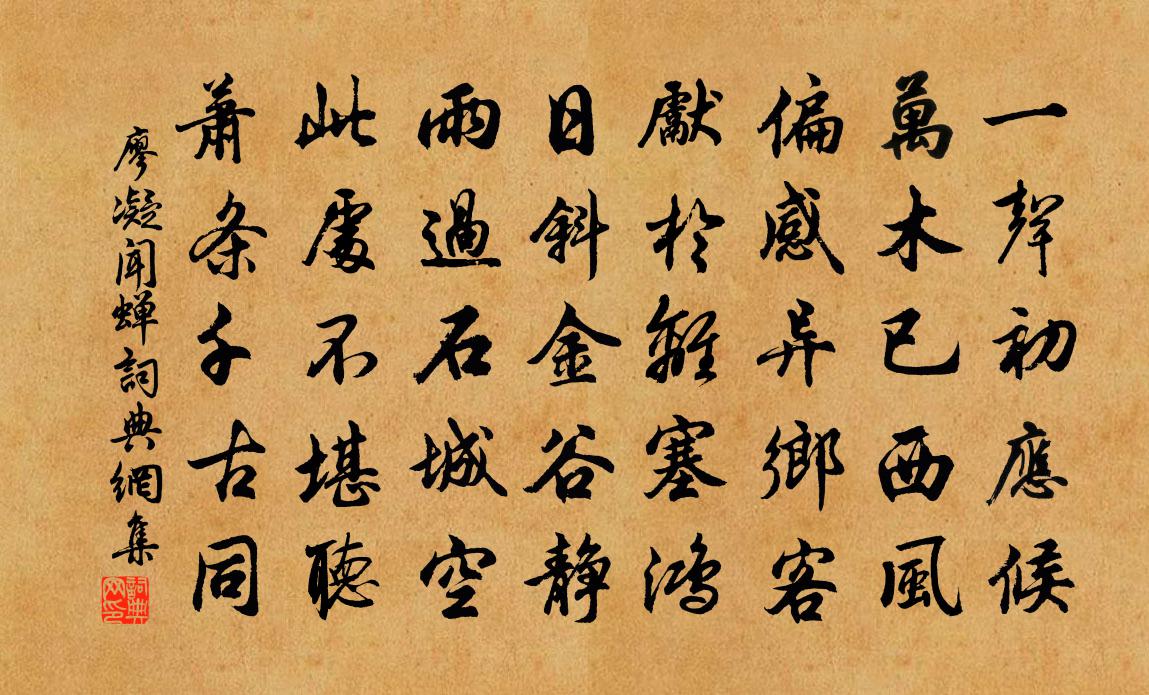 一聲初應候
萬木已西風
偏感异鄉客
獻於離塞鴻
日斜金谷静
雨過石城空
此處不堪聽
蕭条千古同
廖凝聞蝉詞典網集
詞典网印